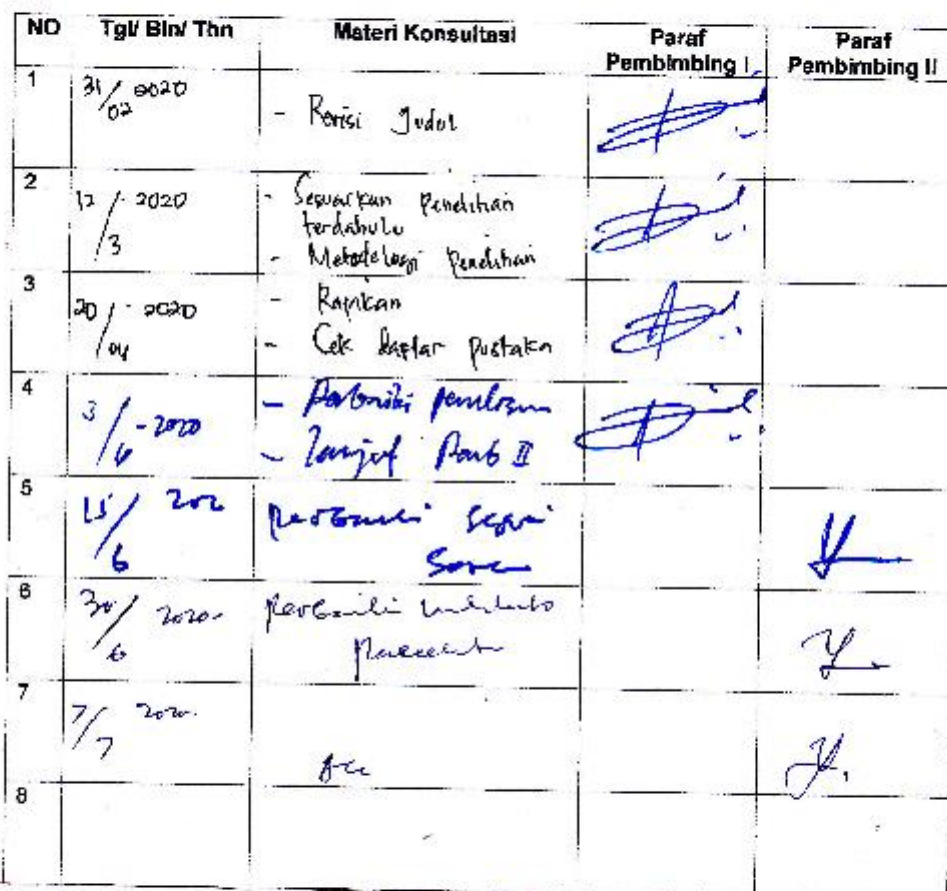 NO Tgl/ Bln/ Thn Materi Konsultasi Paraf Pembimbing I Paraf Pembimbing II
1 31/02 2020 - Revisi Judul
2 12/3 - 2020 - Sesuaikan Penelitian
terdahulu
- Metodologi Penelitian
3 20/04 - 2020 - Rapikan
- Cek daftar pustaka
4 3/6 - 2020 - Perbaiki penulisan
- Lanjut Pemb II
5 15/6 202 perbaiki sesuai
saran
6 30/6 2020. perbaiki
7 7/7 2020. Acc
8